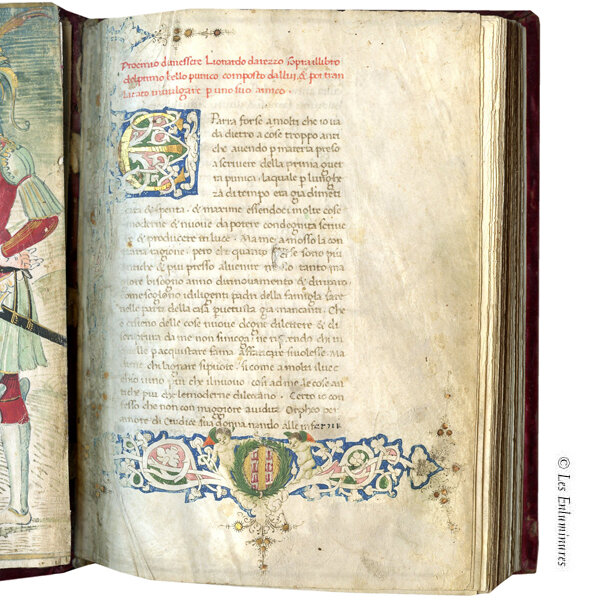 Proemio da messere Lionardo darezzo sopra illibro
del primo bello punico composto da llui, & poi tran
latato in vulgare p uno suo amico.
Parra forse a molti che io va
da dietro a cose troppo anti
che avendo p materia preso
a scrivere della prima guer
ra punica. laquale p lunghe
za di tempo era gia dimen
cata & spenta. & maxime essendoci molte cose
moderne & nuove da potere condegnita scrive
& di producere in luce. Ma me a mosso la con
raria ragione. pero che quanto se sono piu
tiche & piu presso al venir tanto ma
iore bisogno anno di rinovamento & di riparo
come sogliono i diligenti padri della famiglia fare
nelle parti della casa p vetusta gia mancanti. Che
delle cose nuove di
da me non si niega. ne riprendo chi in
le p acquistare fama affaticare si volesse. Ma
che si lasciare si puore. si come a molti il vec
chio vino piu che il nuovo. cosi ad me le cose an
tiche piu che le moderne dilectano. Certo io con
fesso che non con maggiore avidita Orpheo per
amore di Eudice sua donna nando alle inferni
© Les Enluminures